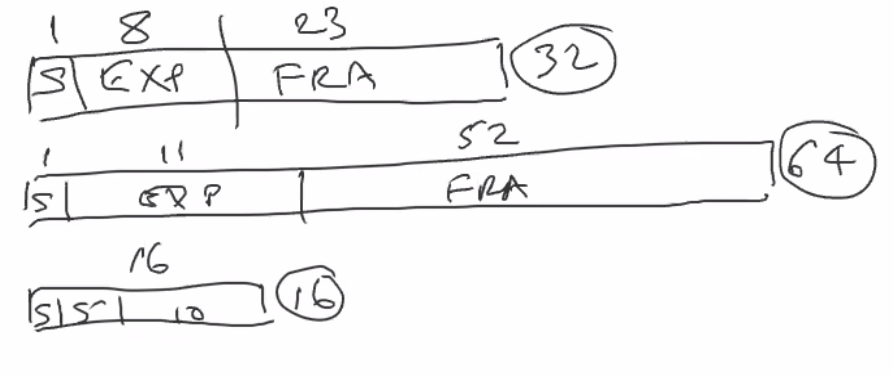 1 8 23
S EXP FRA 32
1 11 52
S EXP FRA 64
16
S 5 10 16